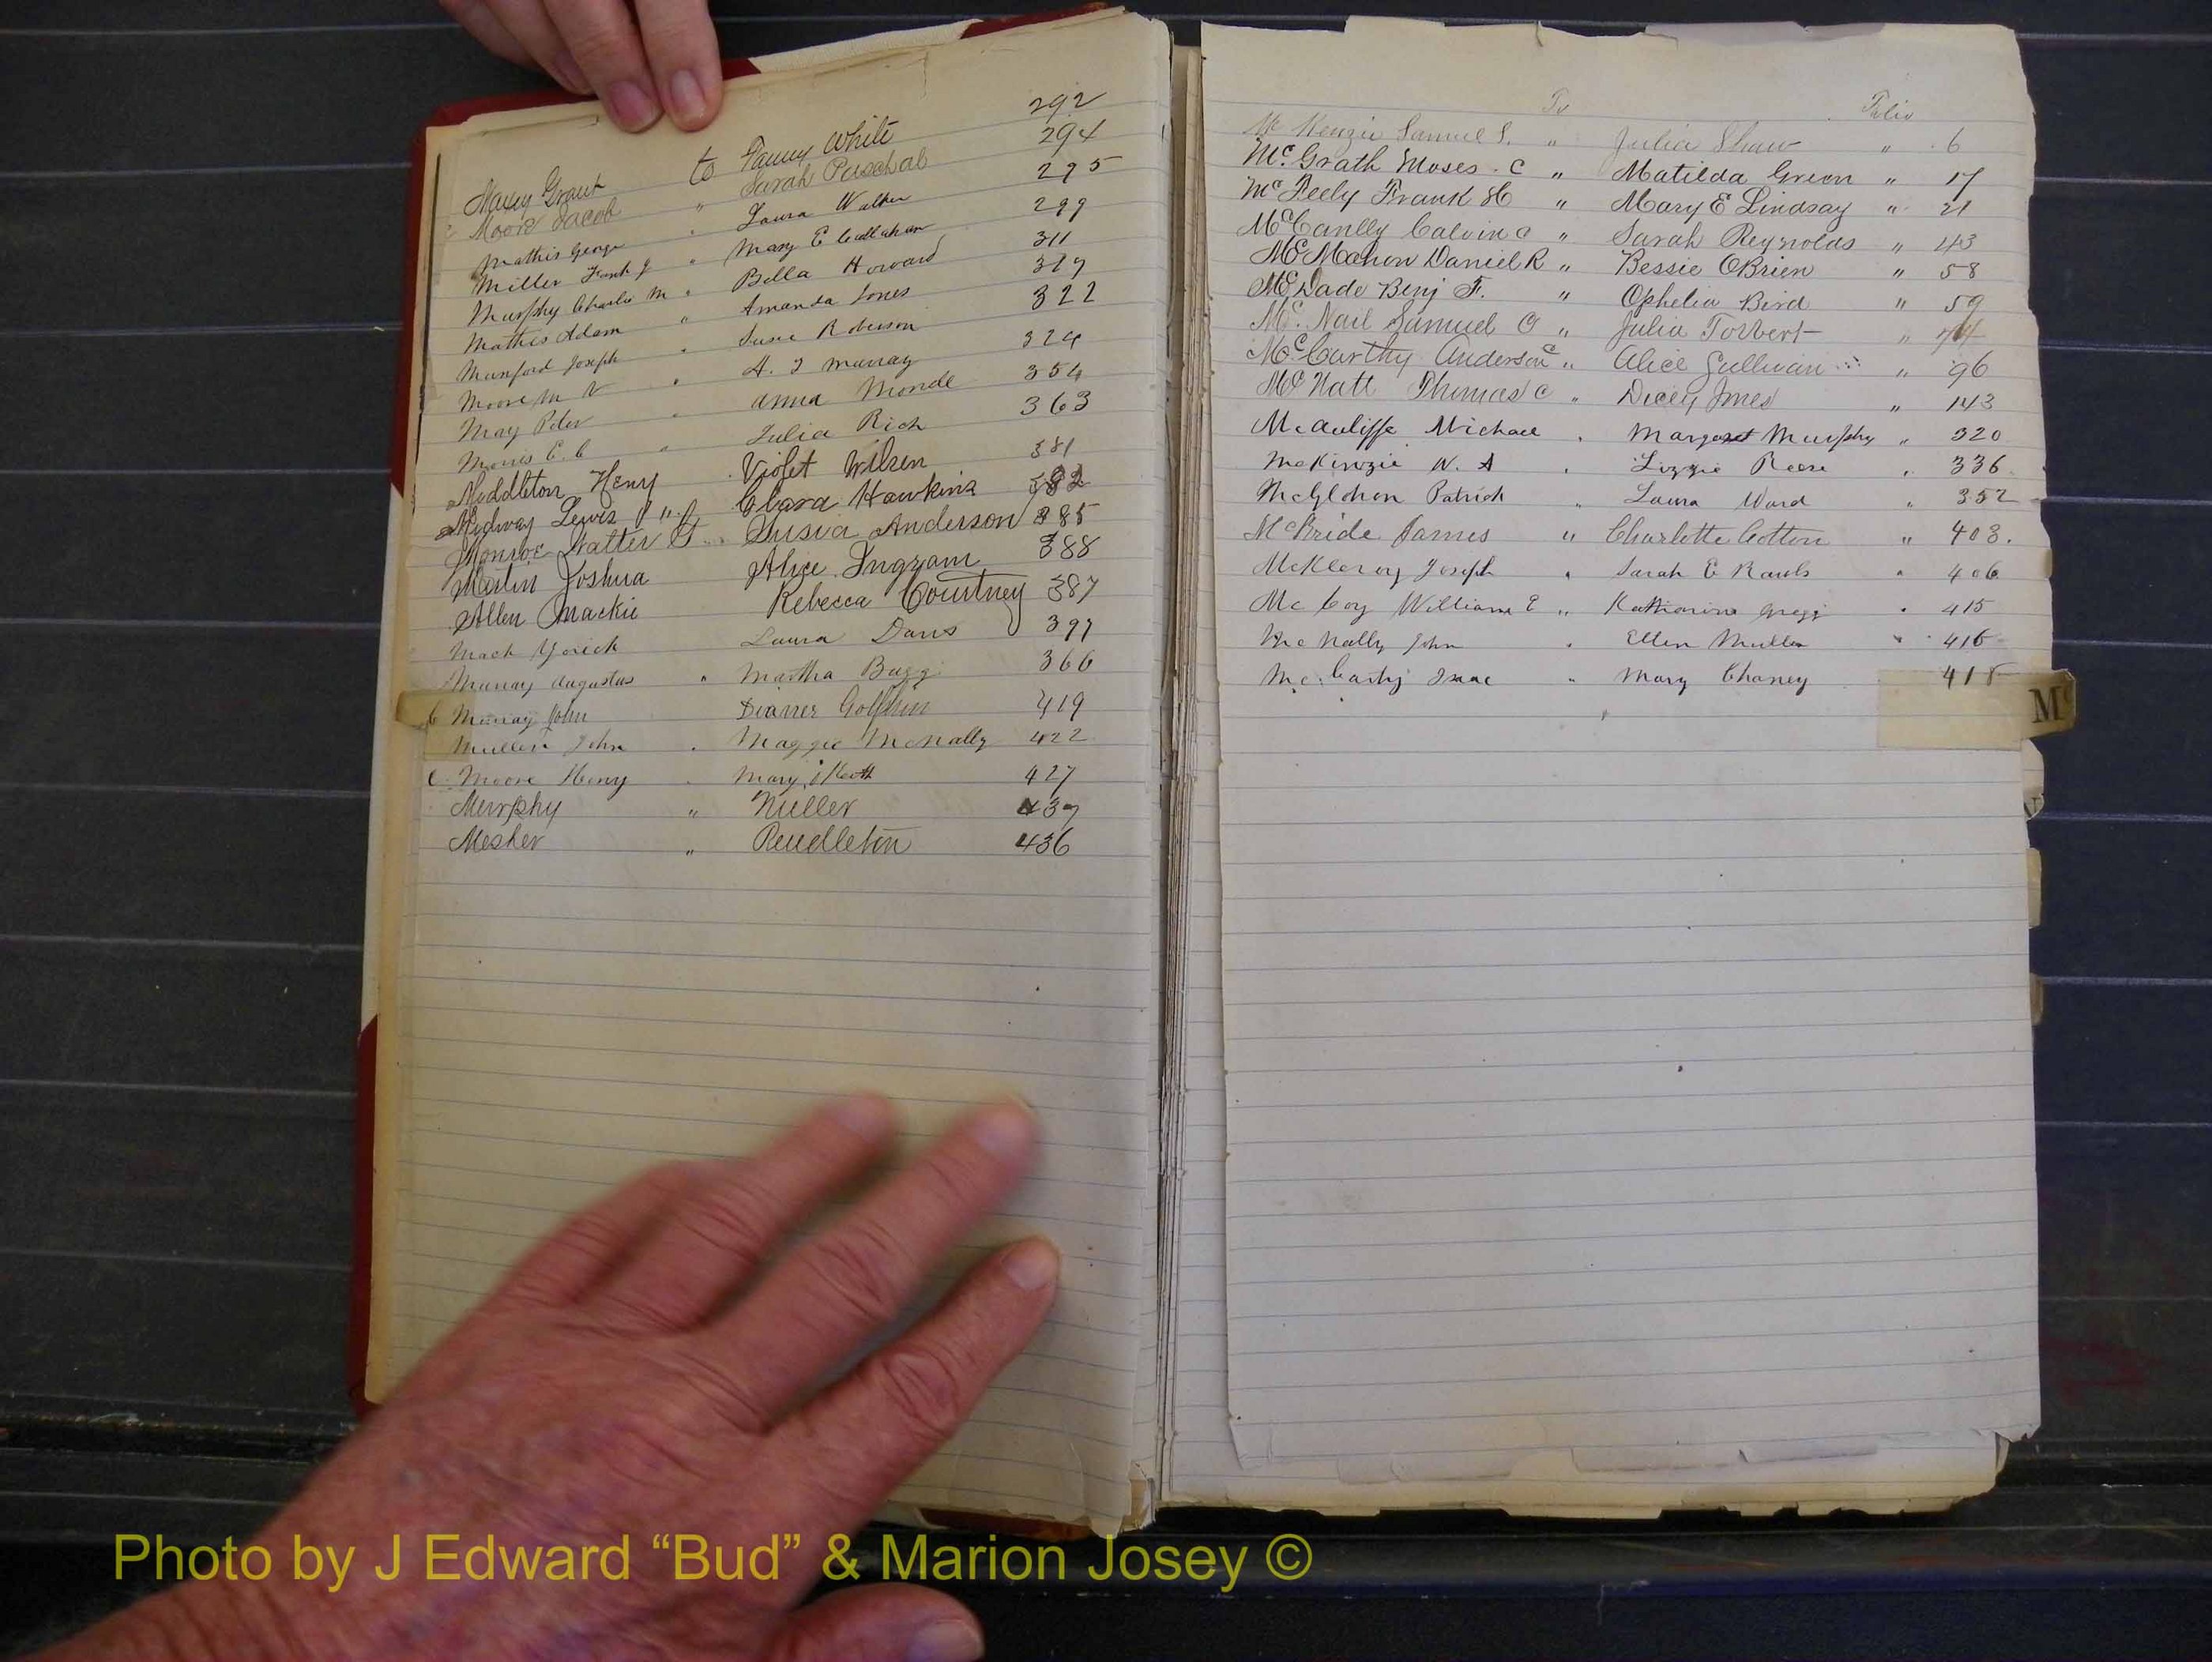 292
Maxey Grant to Fanny White 294
Moore Jacob " Sarah Paschal 295
Mathis George " Laura Walker 299
Miller Frank J " Mary E Callahan 311
Murphy Charlie M " Bella Howard 317
Mathis Adam " Amanda Jones 322
Munford Joseph " Susie Roberson
Moore M V " A. J Murray 324
May Peter " Anna Monde 354
Morris C. C " Julia Rich 363
Middleton Henry Violet Wilson 381
Medway Lewis " Clara Hawkins 382
Monroe Walter Susia Anderson 385
Martin Joshua Alice Ingram 388
Allen Mackie Rebecca Courtney 387
Mack Yorick Laura Davis 397
Murray Augustus " Martha Bugg 366
Murray John Dianer Golphin 419
Mullen John " Maggie McNally 422
Moore Henry " Mary 427
Murphy " Miller 437
Mesher " Pendleton 436
To Folio
McKenzie Samuel S. " Julia Shaw " 6
McGrath Moses. C " Matilda Green " 17
McFeely Frank H " Mary E Lindsay " 21
McCanlly Calvin C " Sarah Reynolds " 43
McMahon Daniel R " Bessie OBrien " 58
McDade Benj F. " Ophelia Bird " 59
McNail Samuel O " Julia Torbert " 74
McCarthy Anderson C " Alice Sullivan " 96
McNatt Thomas C " Dicey Jones " 143
McAuliffe Michael " Margaret Murphy " 320
McKinzie W. A " Lizzie Reese " 336
McGlohon Patrick " Laura Ward " 352
McBride James " Charlotte Cotton " 403.
McKleroy Joseph " Sarah E Rawls " 406
McCoy William E " Katharine Gregg " 415
McNally John " Ellen Mullen " 416
McCarty Isaac " Mary Chaney 418
Mc
Photo by J Edward “Bud” & Marion Josey ©